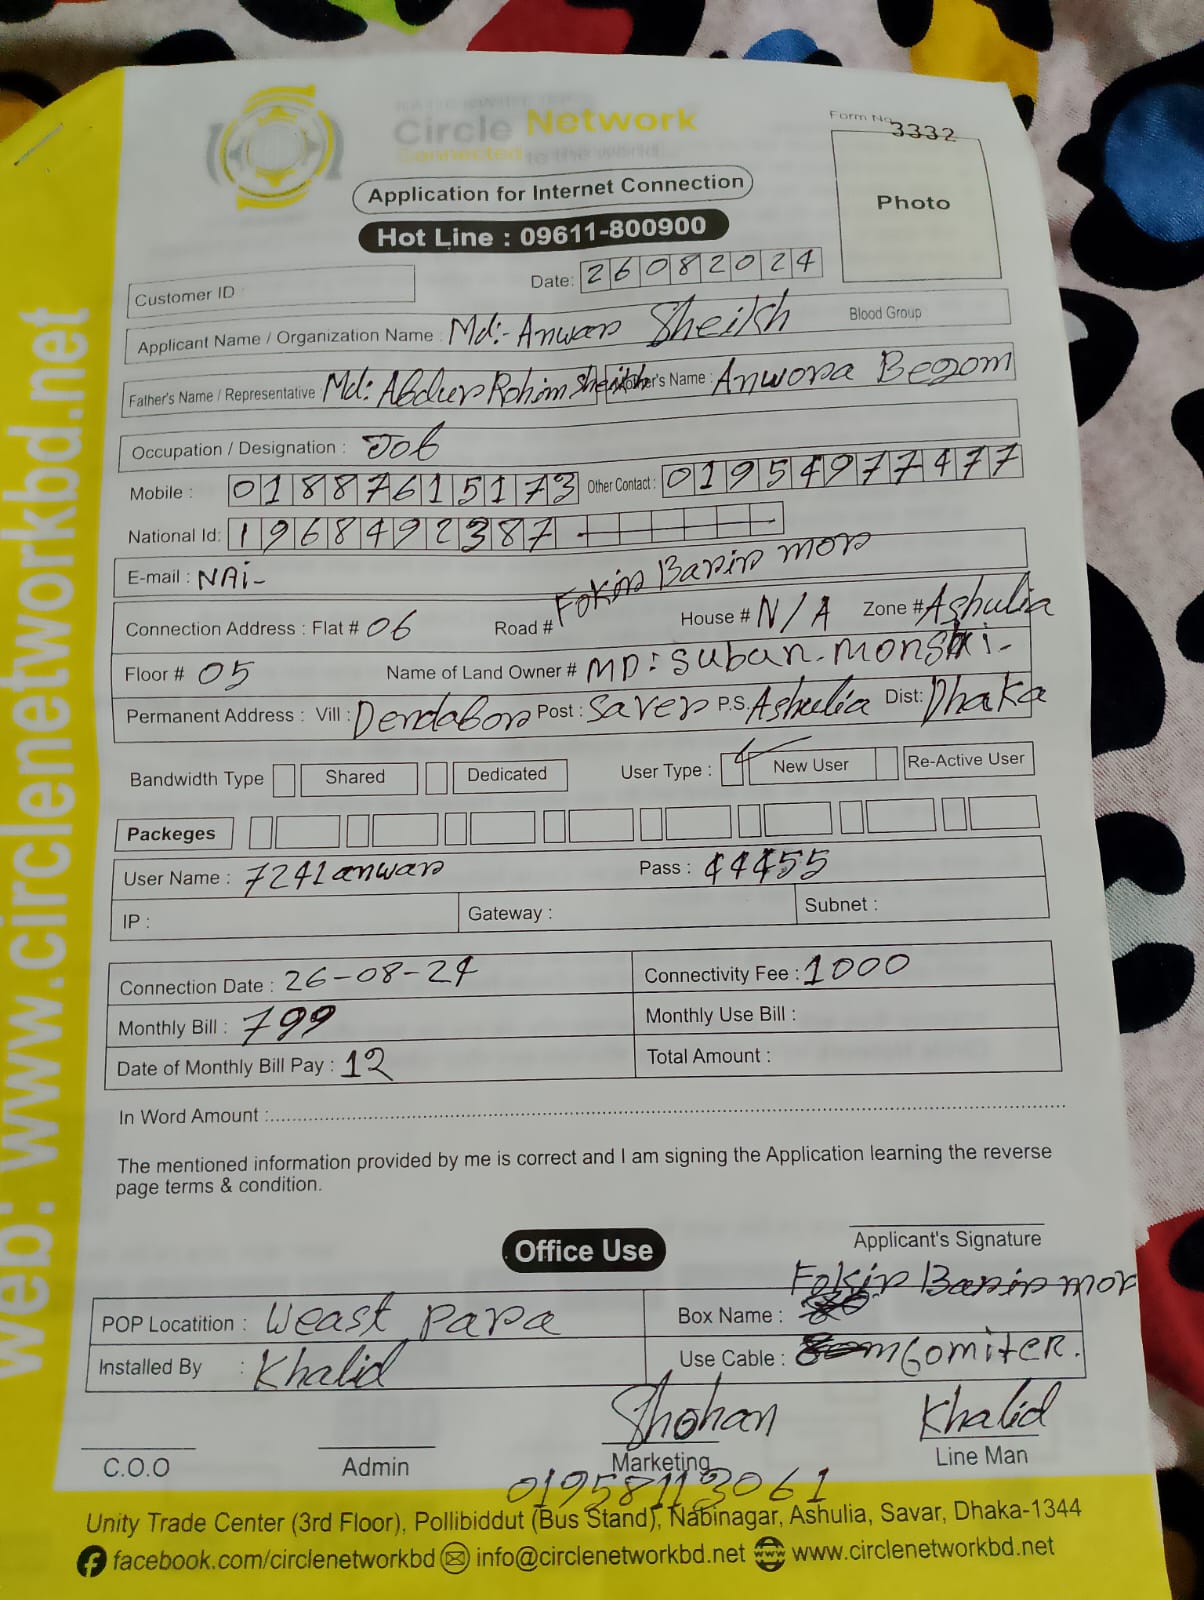 Circle Network
Connected to the world...
Form No 3332
Photo
Application for Internet Connection
Hot Line : 09611-800900
Customer ID
Date: 26082024
Applicant Name / Organization Name : Md:- Anwar Sheikh Blood Group
Father's Name / Representative : Md: Abdur Rohim Sheikh Mother's Name : Anwora Begom
Occupation / Designation : Job
Mobile : 01887615173 Other Contact : 01954977477
National Id: 1968492387
E-mail : NAi-
Connection Address : Flat # 06 Road # Fokir Barir mor House # N/A Zone # Ashulia
Floor # 05 Name of Land Owner # MD: Suban. monshi-
Permanent Address : Vill : Dendabor Post : Saver P.S. Ashulia Dist: Dhaka
Bandwidth Type Shared Dedicated User Type : New User Re-Active User
Packeges
User Name : 7241anwar Pass : 44455
IP : Gateway : Subnet :
Connection Date : 26-08-24 Connectivity Fee : 1000
Monthly Bill : 799 Monthly Use Bill :
Date of Monthly Bill Pay : 12 Total Amount :
In Word Amount :
The mentioned information provided by me is correct and I am signing the Application learning the reverse
page terms & condition.
Applicant's Signature
Office Use
POP Locatition : Weast para Box Name : Fokir Barir mor
Installed By : Khalid Use Cable : miter.
Shohan Khalid
C.O.O Admin Marketing Line Man
01958113061
Unity Trade Center (3rd Floor), Pollibiddut (Bus Stand), Nabinagar, Ashulia, Savar, Dhaka-1344
facebook.com/circlenetworkbd info@circlenetworkbd.net www.circlenetworkbd.net
web: www.circlenetworkbd.net